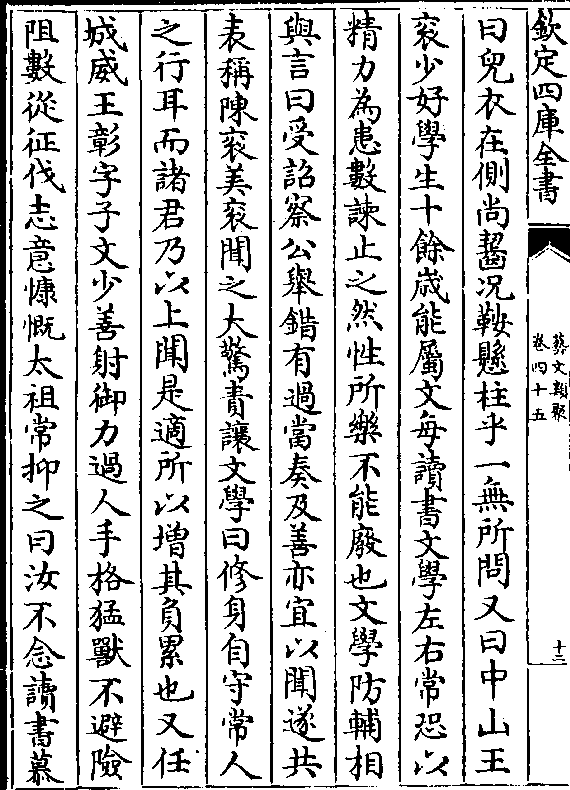 欽定四庫全書
藝文類聚
卷四十五
十二
曰兒衣在側尚齧况鞍懸柱乎一無所問又曰中山王
衮少好學生十餘歲能屬文每讀書文學左右常恐以
精力為患數諫止之然性所樂不能廢也文學防輔相
與言曰受詔察公舉錯有過當奏及善亦宜以聞遂共
表稱陳衮美衮聞之大驚責讓文學曰修身自守常人
之行耳而諸君乃以上聞是適所以增其負累也又任
城威王彰字子文少善射御力過人手格猛獸不避險
阻數從征伐志意慷慨太祖常抑之曰汝不念讀書慕